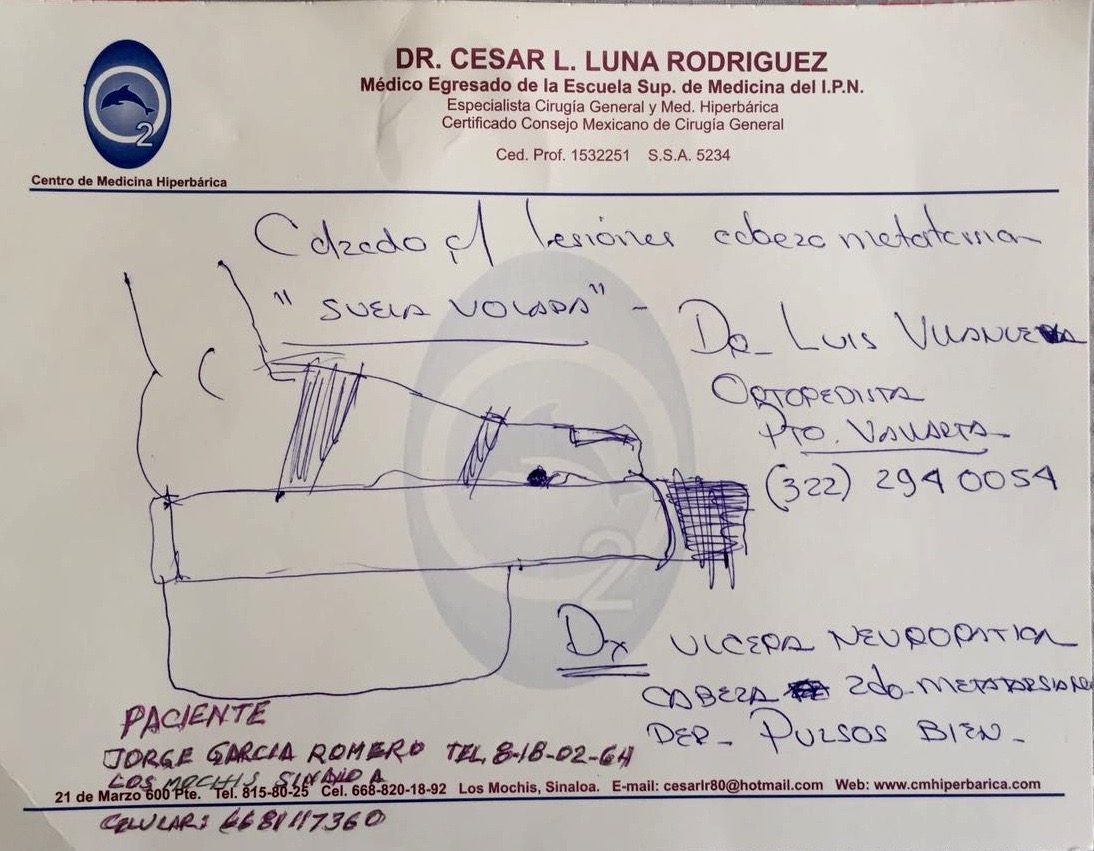 DR. CESAR L. LUNA RODRIGUEZ
Médico Egresado de la Escuela Sup. de Medicina del I.P.N.
Especialista Cirugía General y Med. Hiperbárica
Certificado Consejo Mexicano de Cirugía General
Ced. Prof. 1532251 S.S.A. 5234
2
Centro de Medicina Hiperbárica
Calzado p/ lesiones cabeza metatarsian
"SUELA VOLADA" -
DR. LUIS VILLANUEVA
ORTOPEDISTA
PTO. VALLARTA
(322) 294 0054
2
Dx ULCERA NEUROPATICA
CABEZA 2do METATARSIANO
DER - PULSOS BIEN -
PACIENTE
JORGE GARCIA ROMERO TEL, 8-18-02-64
LOS MOCHIS, SINALOA
21 de Marzo 600 Pte. Tel. 815-80-25 Cel. 668-820-18-92 Los Mochis, Sinaloa. E-mail: cesarlr80@hotmail.com Web: www.cmhiperbarica.com
CELULAR: 6681117360